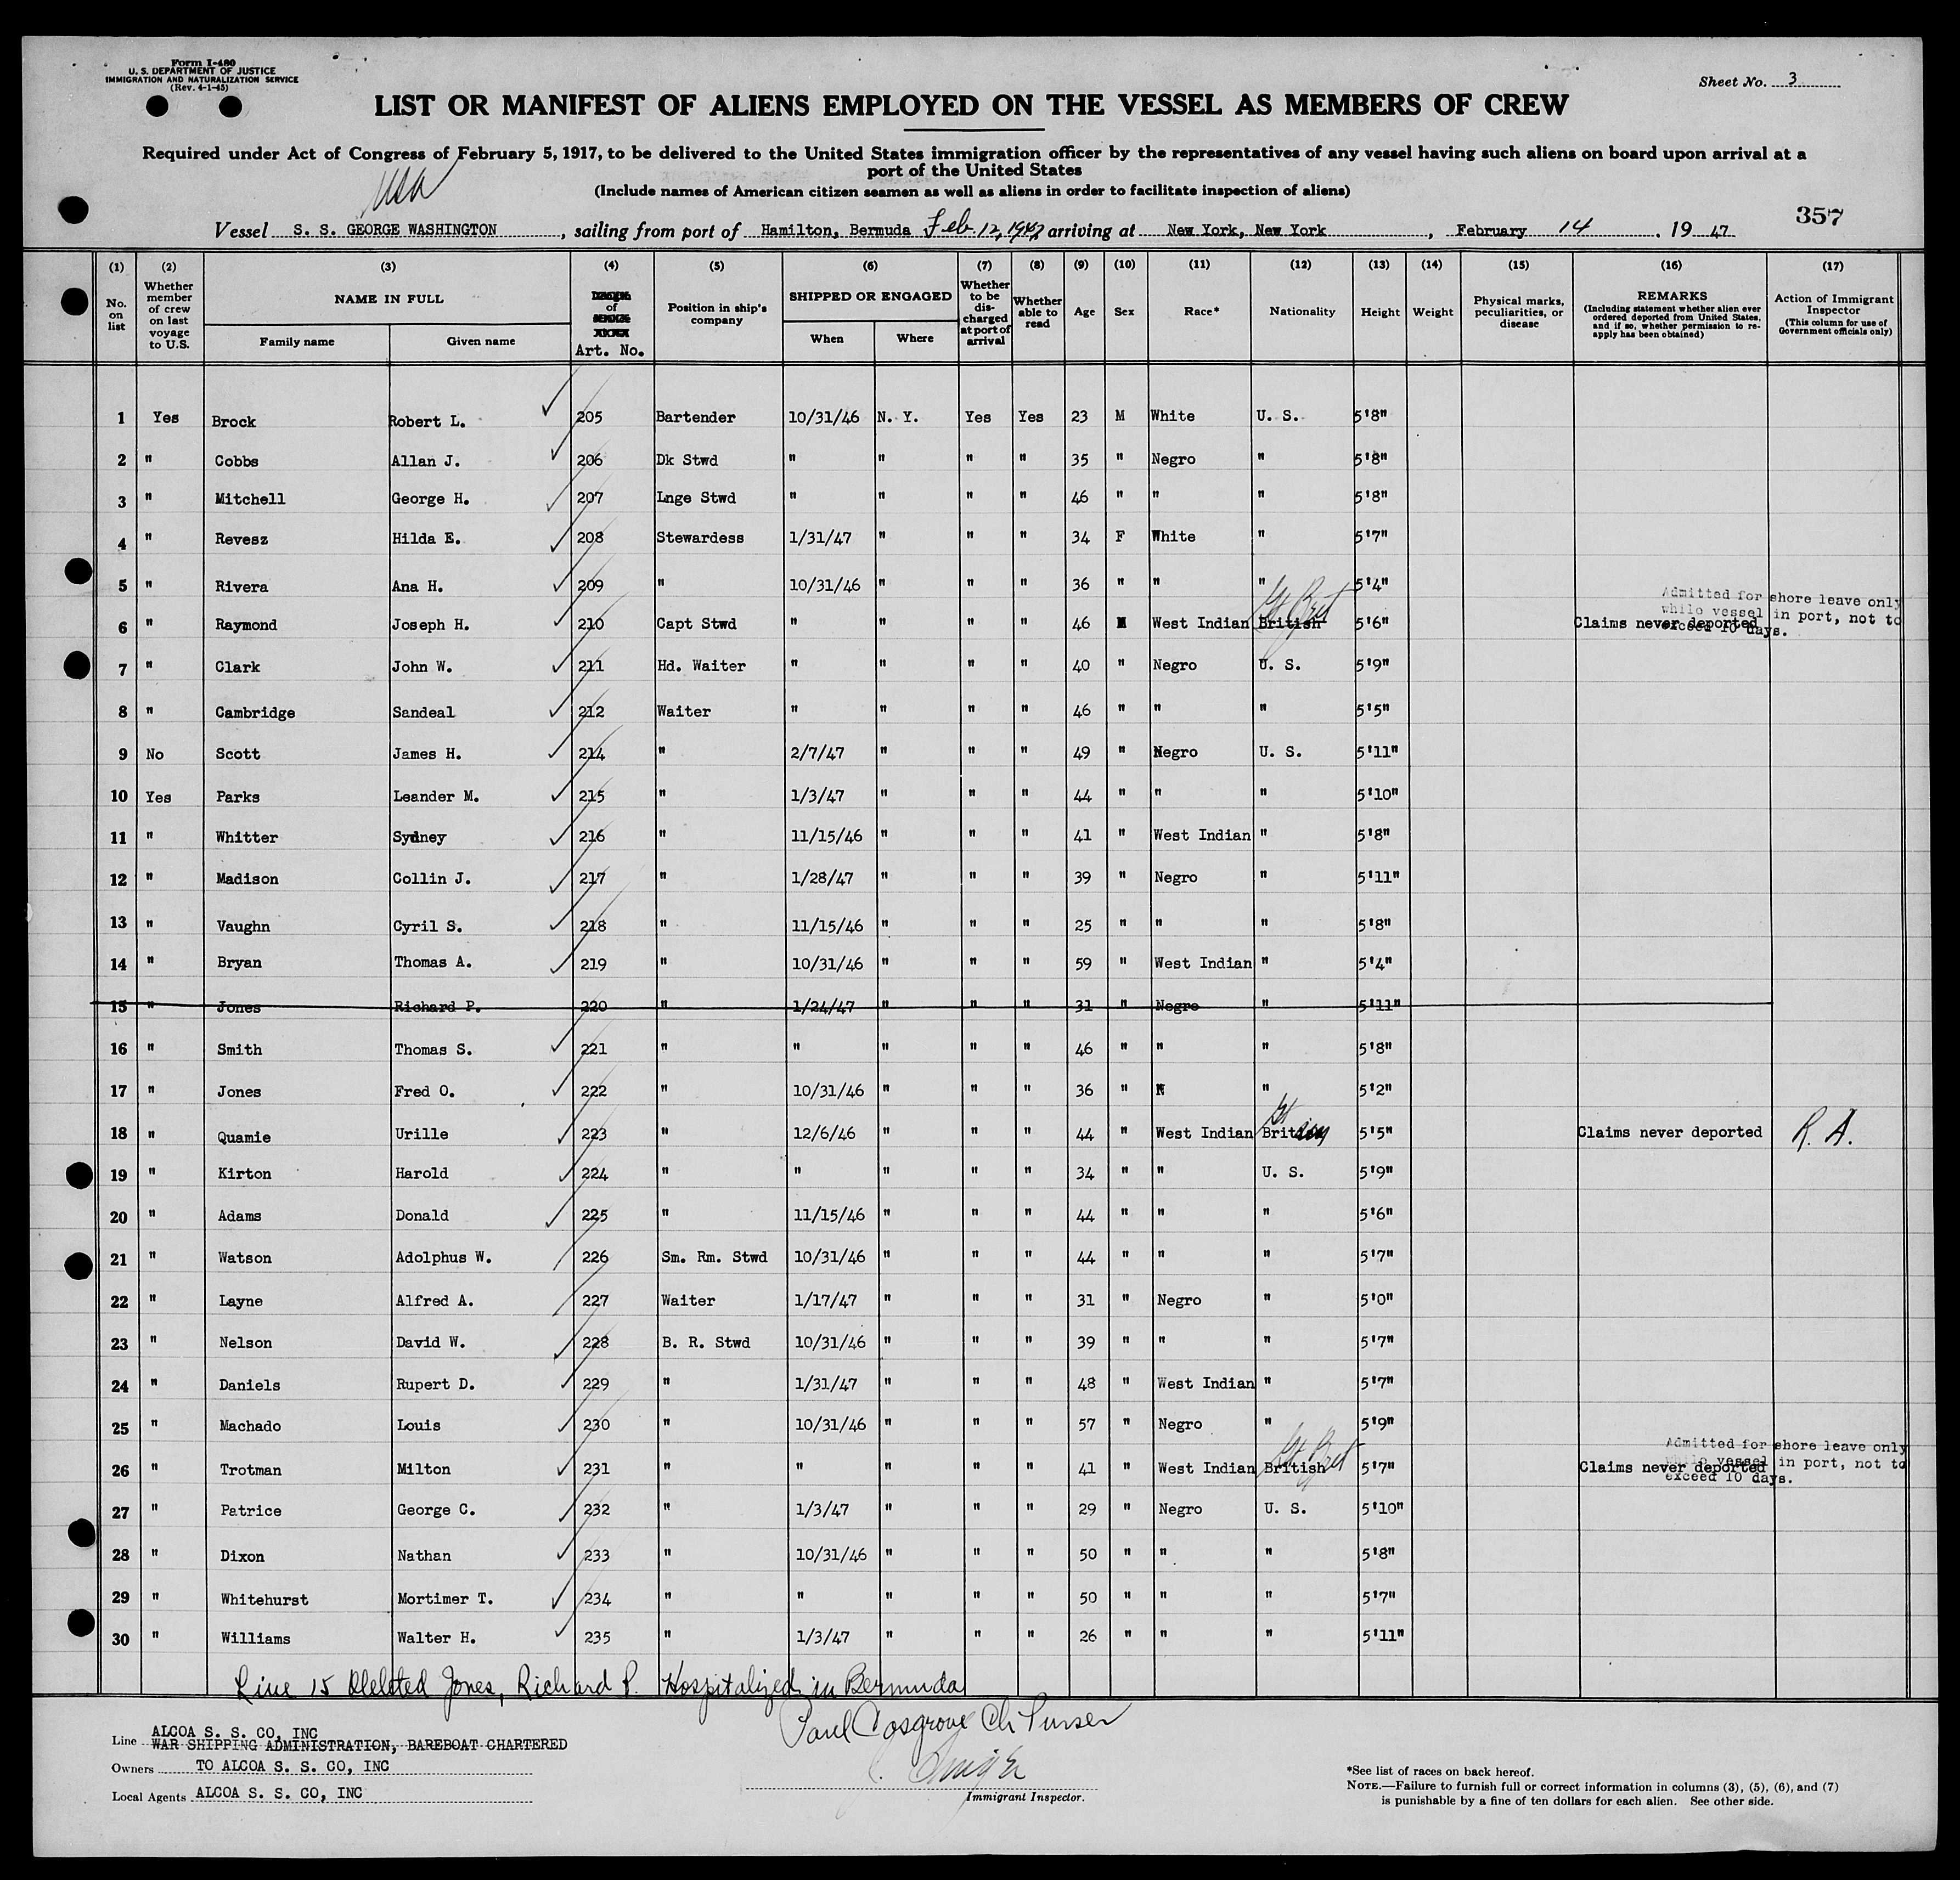 Form I-480
U. S. DEPARTMENT OF JUSTICE
IMMIGRATION AND NATURALIZATION SERVICE
(Rev. 4-1-45)
Sheet No. 3
LIST OR MANIFEST OF ALIENS EMPLOYED ON THE VESSEL AS MEMBERS OF CREW
Required under Act of Congress of February 5, 1917, to be delivered to the United States immigration officer by the representatives of any vessel having such aliens on board upon arrival at a
port of the United States
(Include names of American citizen seamen as well as aliens in order to facilitate inspection of aliens)
USA
357
Vessel S. S. GEORGE WASHINGTON, sailing from port of Hamilton, Bermuda Feb. 12, 1947, arriving at New York, New York, February 14, 19 47
(1) (2) (3) (4) (5) (6) (7) (8) (9) (10) (11) (12) (13) (14) (15) (16) (17)
No. on list
Whether member of crew on last voyage to U.S.
NAME IN FULL
Family name
Given name
of
Art. No.
Position in ship's company
SHIPPED OR ENGAGED
When
Where
Whether to be discharged at port of arrival
Whether able to read
Age
Sex
Race*
Nationality
Height
Weight
Physical marks, peculiarities, or disease
REMARKS
(Including statement whether alien ever ordered deported from United States, and if so, whether permission to re-apply has been obtained)
Action of Immigrant Inspector
(This column for use of Government officials only)
1 Yes Brock Robert L. 205 Bartender 10/31/46 N. Y. Yes Yes 23 M White U. S. 5'8"
2 " Cobbs Allan J. 206 Dk Stwd " " " " 35 " Negro " 5'8"
3 " Mitchell George H. 207 Lnge Stwd " " " " 46 " " " 5'8"
4 " Revesz Hilda E. 208 Stewardess 1/31/47 " " " 34 F White " 5'7"
5 " Rivera Ana H. 209 " 10/31/46 " " " 36 " " " 5'4"
Gt Brit
Admitted for shore leave only
while vessel in port, not to
exceed 10 days.
6 " Raymond Joseph H. 210 Capt Stwd " " " " 46 M West Indian British 5'6" Claims never deported
7 " Clark John W. 211 Hd. Waiter " " " " 40 " Negro U. S. 5'9"
8 " Cambridge Sandeal 212 Waiter " " " " 46 " " " 5'5"
9 No Scott James H. 214 " 2/7/47 " " " 49 " Negro U. S. 5'11"
10 Yes Parks Leander M. 215 " 1/3/47 " " " 44 " " " 5'10"
11 " Whitter Sydney 216 " 11/15/46 " " " 41 " West Indian " 5'8"
12 " Madison Collin J. 217 " 1/28/47 " " " 39 " Negro " 5'11"
13 " Vaughn Cyril S. 218 " 11/15/46 " " " 25 " " " 5'8"
14 " Bryan Thomas A. 219 " 10/31/46 " " " 59 " West Indian " 5'4"
15 " Jones Richard P. 220 " 1/24/47 " " " 31 " Negro " 5'11"
16 " Smith Thomas S. 221 " " " " " 46 " " " 5'8"
17 " Jones Fred O. 222 " 10/31/46 " " " 36 " N " 5'2"
Gt
18 " Quamie Urille 223 " 12/6/46 " " " 44 " West Indian Brit 5'5" Claims never deported R. A.
19 " Kirton Harold 224 " " " " " 34 " " U. S. 5'9"
20 " Adams Donald 225 " 11/15/46 " " " 44 " " " 5'6"
21 " Watson Adolphus W. 226 Sm. Rm. Stwd 10/31/46 " " " 44 " " " 5'7"
22 " Layne Alfred A. 227 Waiter 1/17/47 " " " 31 " Negro " 5'0"
23 " Nelson David W. 228 B. R. Stwd 10/31/46 " " " 39 " " " 5'7"
24 " Daniels Rupert D. 229 " 1/31/47 " " " 48 " West Indian " 5'7"
25 " Machado Louis 230 " 10/31/46 " " " 57 " Negro " 5'9"
Gt Brit
Admitted for shore leave only
while vessel in port, not to
exceed 10 days.
26 " Trotman Milton 231 " " " " " 41 " West Indian British 5'7" Claims never deported
27 " Patrice George C. 232 " 1/3/47 " " " 29 " Negro U. S. 5'10"
28 " Dixon Nathan 233 " 10/31/46 " " " 50 " " " 5'8"
29 " Whitehurst Mortimer T. 234 " " " " " 50 " " " 5'7"
30 " Williams Walter H. 235 " 1/3/47 " " " 26 " " " 5'11"
Line 15 Deleted Jones, Richard P. Hospitalized in Bermuda
Paul Cosgrove Ch Purser
ALCOA S. S. CO, INC
Line WAR SHIPPING ADMINISTRATION, BAREBOAT CHARTERED
Owners TO ALCOA S. S. CO, INC
Local Agents ALCOA S. S. CO, INC
Immigrant Inspector.
*See list of races on back hereof.
NOTE.—Failure to furnish full or correct information in columns (3), (5), (6), and (7)
is punishable by a fine of ten dollars for each alien. See other side.